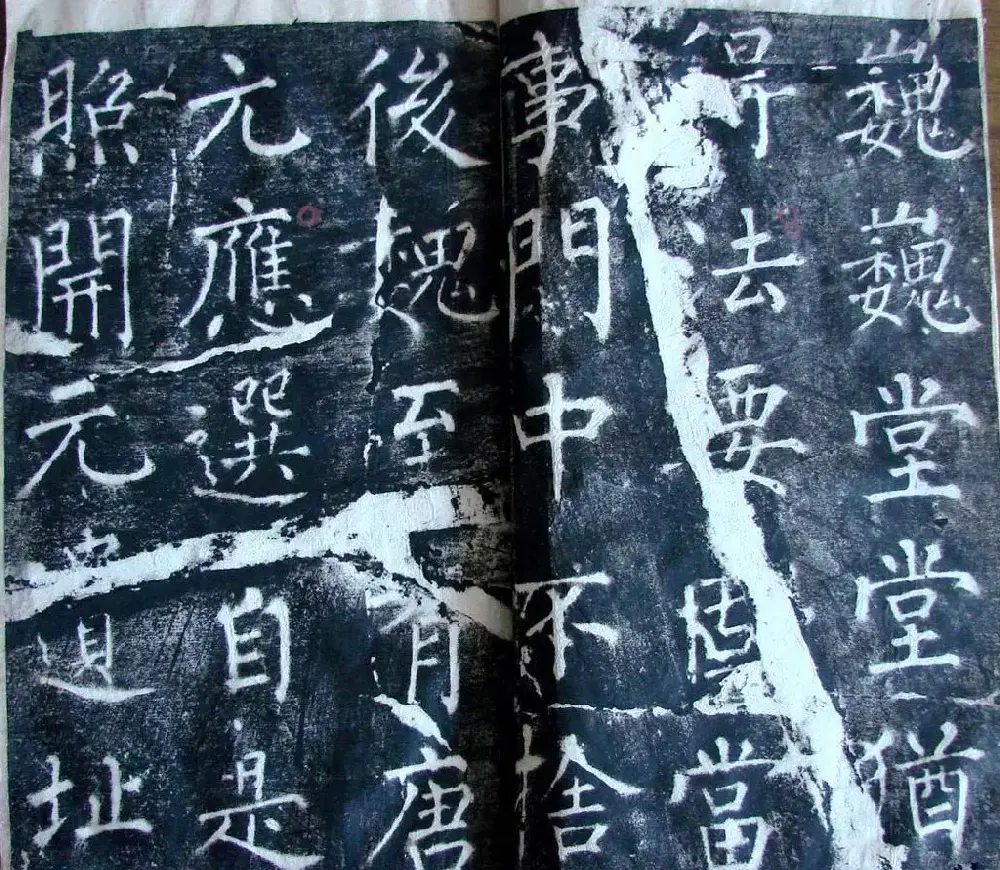 巍巍堂堂猶
得法要當
事門中不捨
後魏至有唐
元應選自是
照開元址